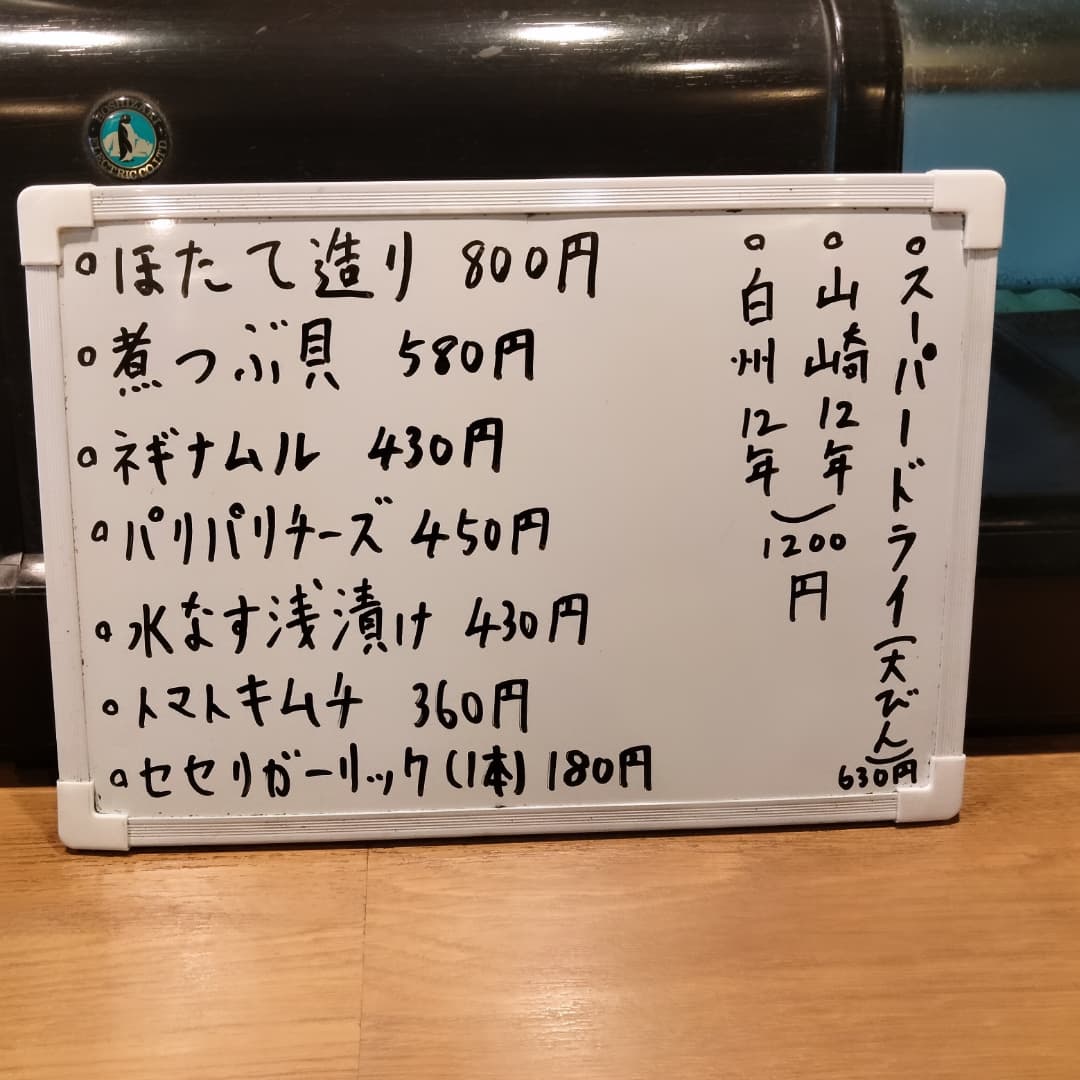 HOSHIZAKI ELECTRIC CO.,LTD.
ほたて造り 800円
煮つぶ貝 580円
ネギナムル 430円
パリパリチーズ 450円
水なす浅漬け 430円
トマトキムチ 360円
セセリガーリック(1本) 180円
スーパードライ(大びん) 630円
山崎12年
白州12年
1200円